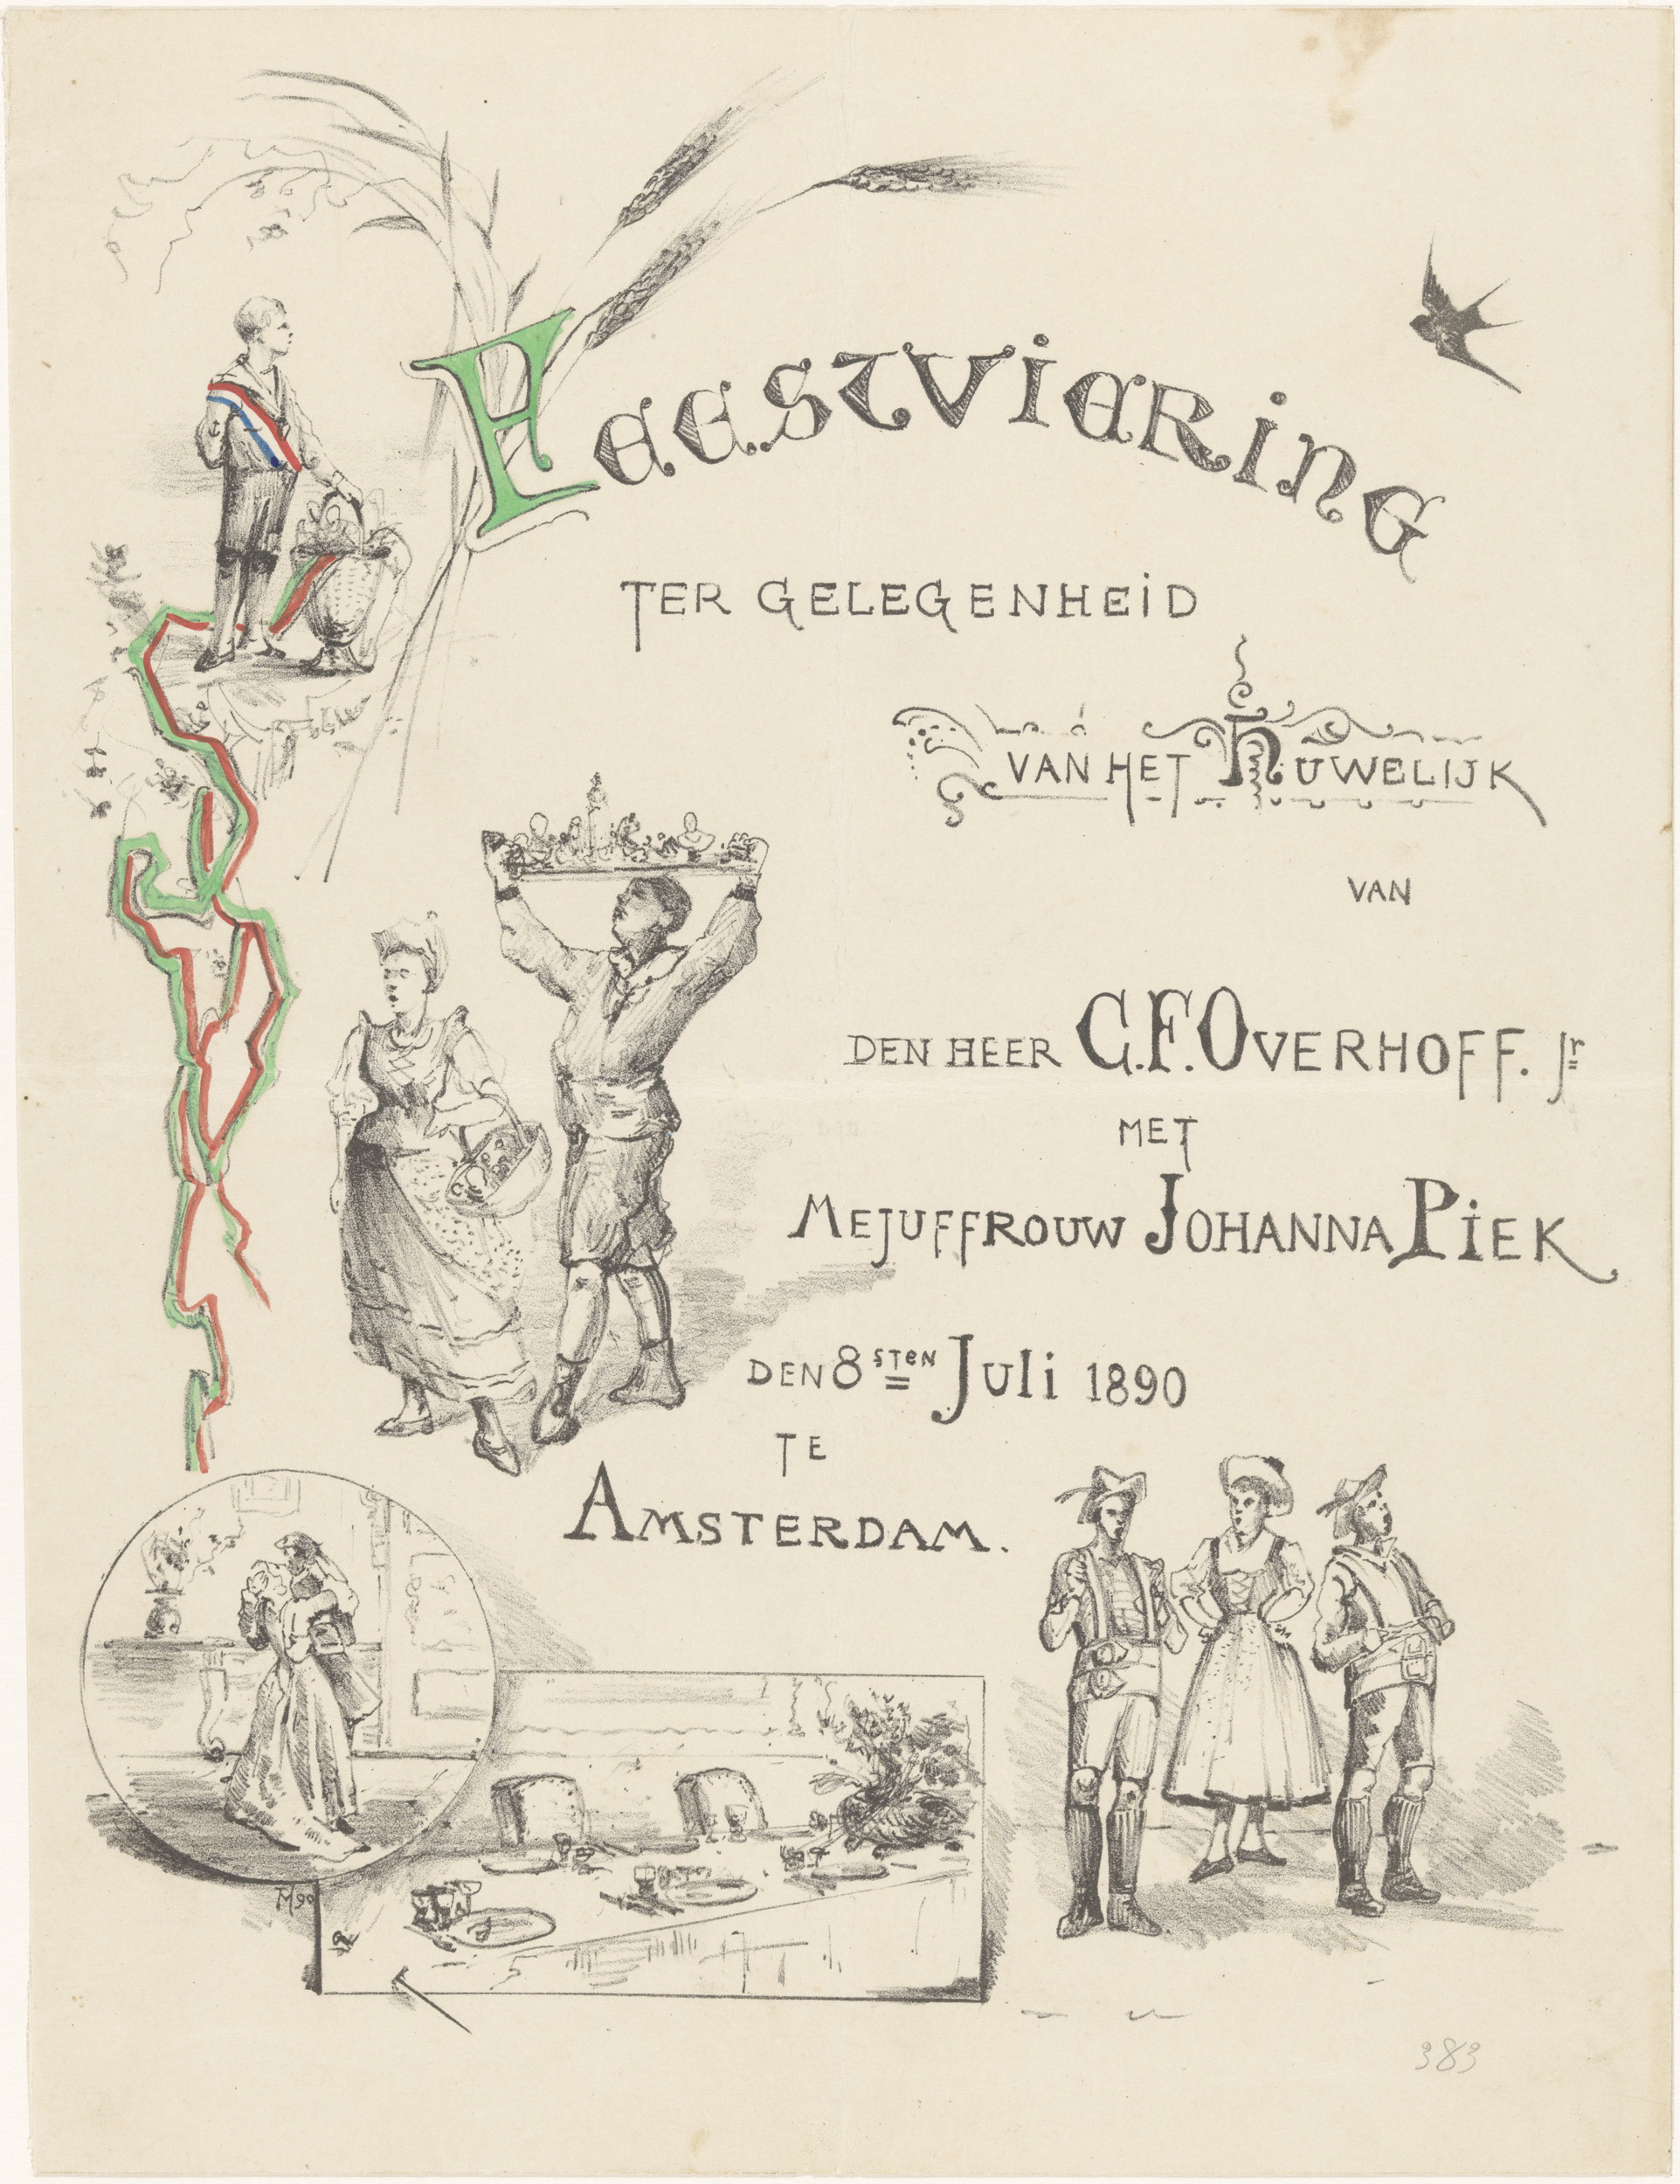 Feestviering
TER GELEGENHEID
VAN HET HUWELIJK
VAN
DEN HEER C.F. OVERHOFF. Jr
MET
MEJUFFROUW JOHANNA PIEK
DEN 8sten Juli 1890
TE
AMSTERDAM.
383